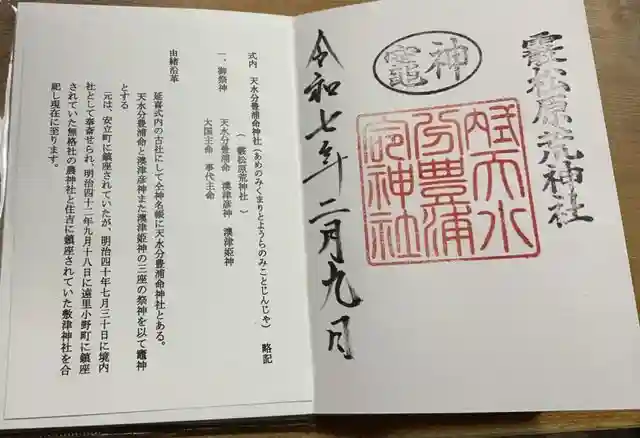 霰松原荒神社
神竈
式内天水
分豊浦
命神社
令和七年二月九日
式内 天水分豊浦命神社(あめのみくまりとようらのみことじんじゃ) 略記
(霰松原荒神社)
一、御祭神 天水分豊浦命 澳津彦神 澳津姫神
大国主命 事代主命
由緒沿革
延喜式内の古社にして全神名帳に天水分豊浦命神社とある。
天水分豊浦命と澳津彦神また澳津姫神の三座の祭神を以て竈神
とする
元は、安立町に鎮座されていたが、明治四十年七月三十日に境内
社として奉斎せられ、明治四十二年九月十八日に遠里小野町に鎮座
されていた無格社の農神社と住吉に鎮座されていた敷津神社を合
祀し現在に至ります。